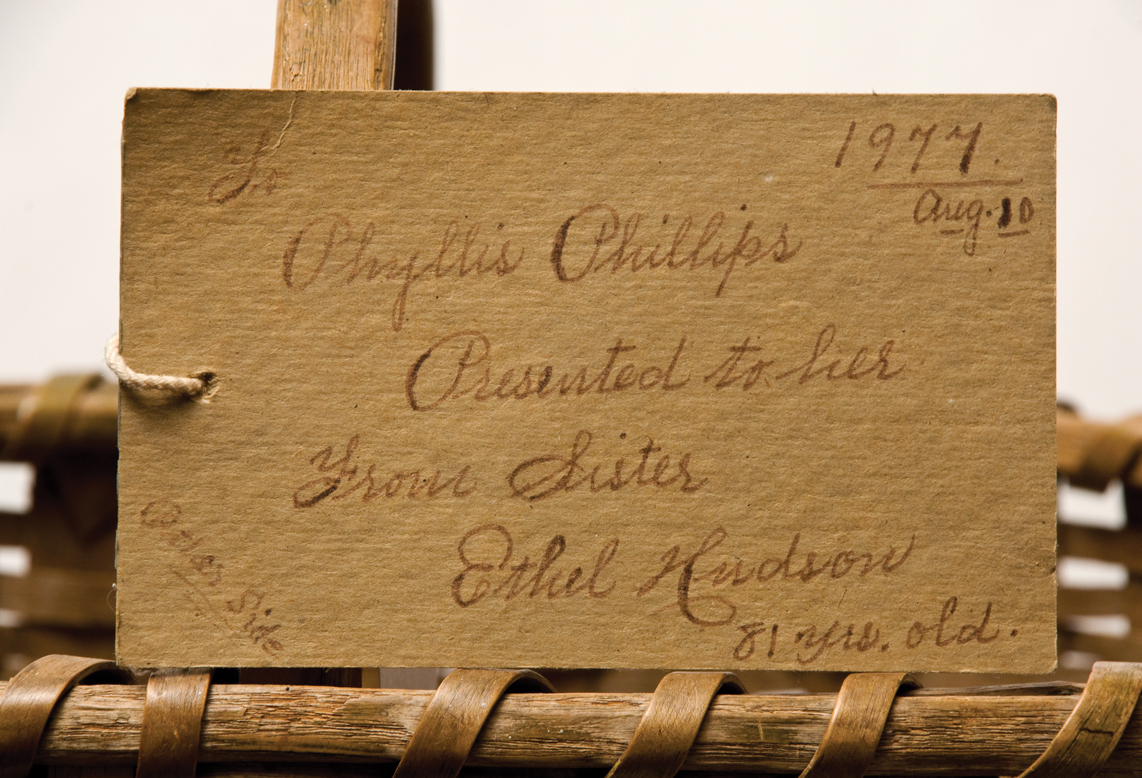 1977.
Aug. 10
To
Phyllis Phillips
Presented to her
From Sister
Ethel Hudson
81 yrs. old.
Other Side